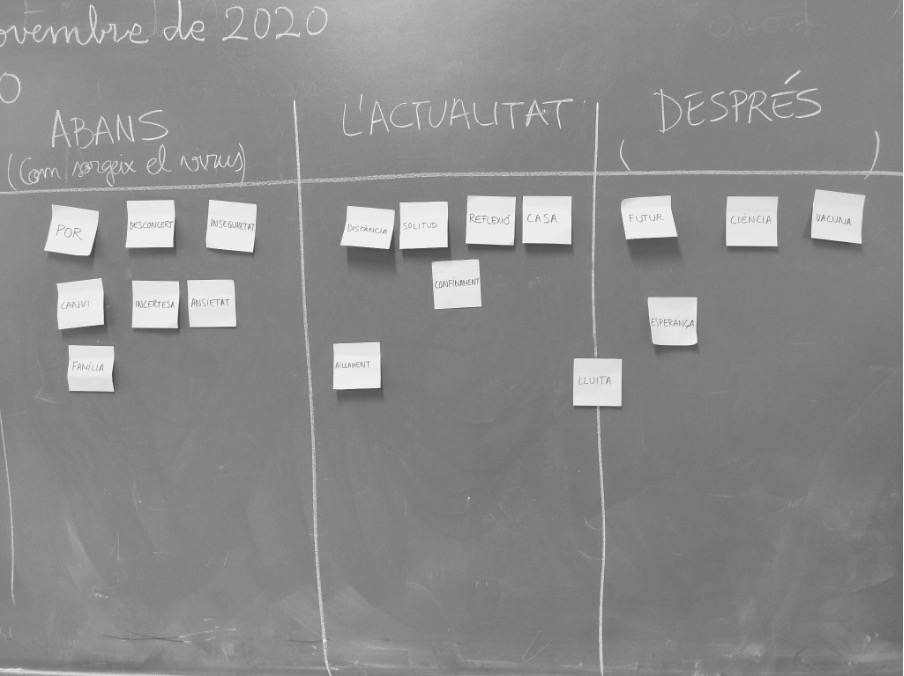 ovembre de 2020
0
ABANS
(Com sorgeix el virus)
L'ACTUALITAT
DESPRÉS
(                    )
POR
DESCONCERT
INSEGURETAT
CANVI
INCERTESA
ANSIETAT
FAMÍLIA
DISTÀNCIA
SOLITUD
REFLEXIÓ
CASA
CONFINAMENT
AÏLLAMENT
LLUITA
FUTUR
CIÈNCIA
VACUNA
ESPERANÇA